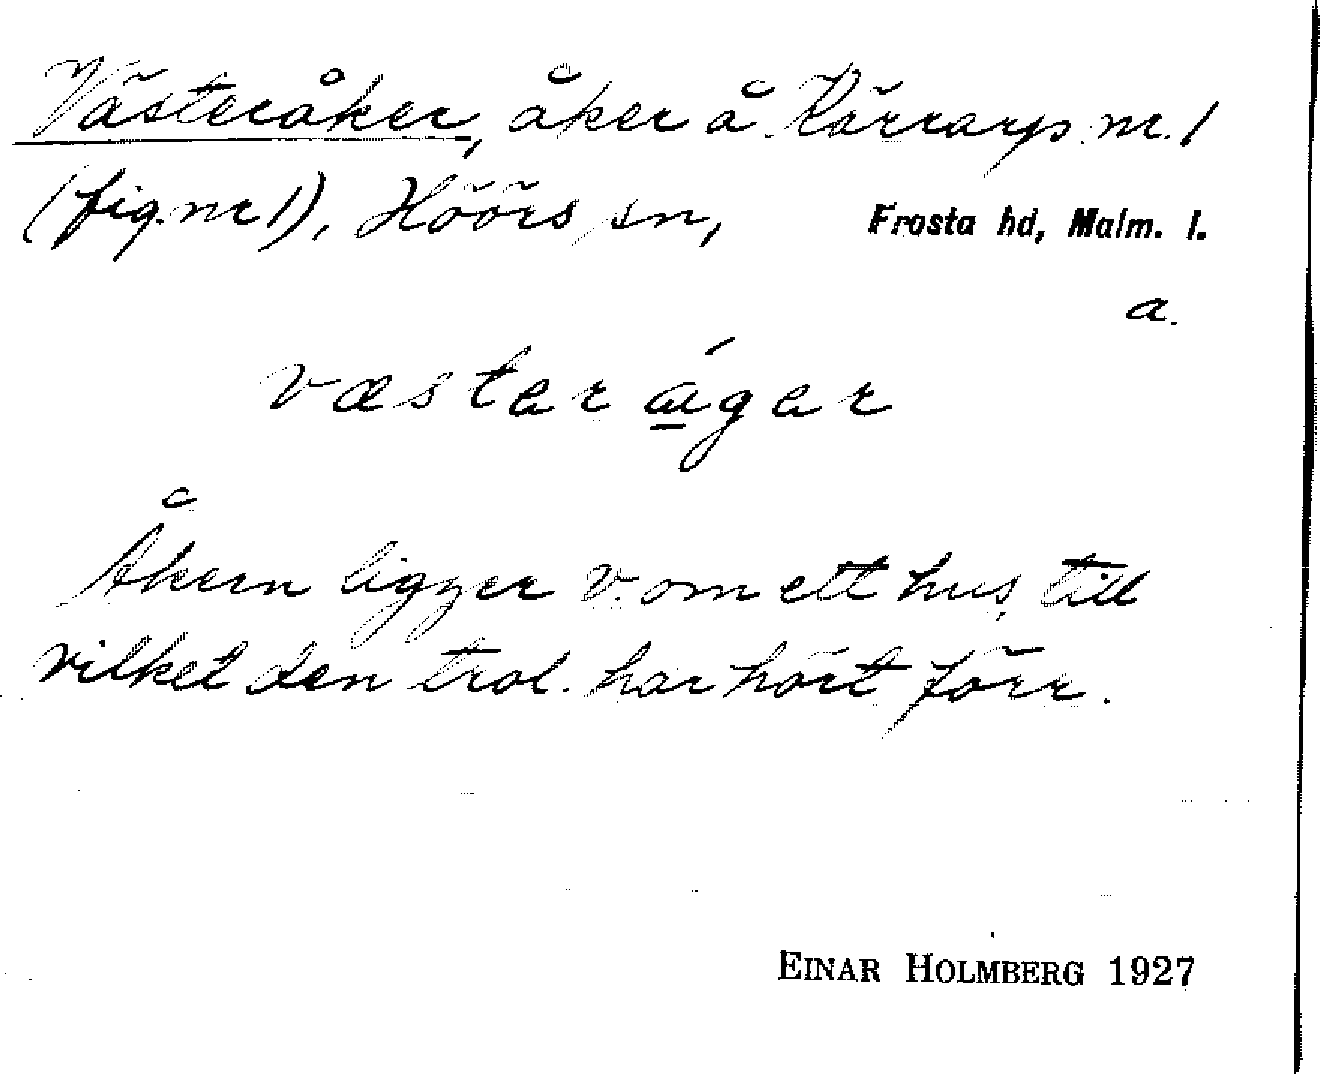 Västeråker, åker å Kärrarp nr. 1
(fig. nr 1), Höörs sn, Frosta hd, Malm. l.
a.
væsteráger
Åkern ligger v. om ett hus, till
vilket den trol. har hört förr.
EINAR HOLMBERG 1927